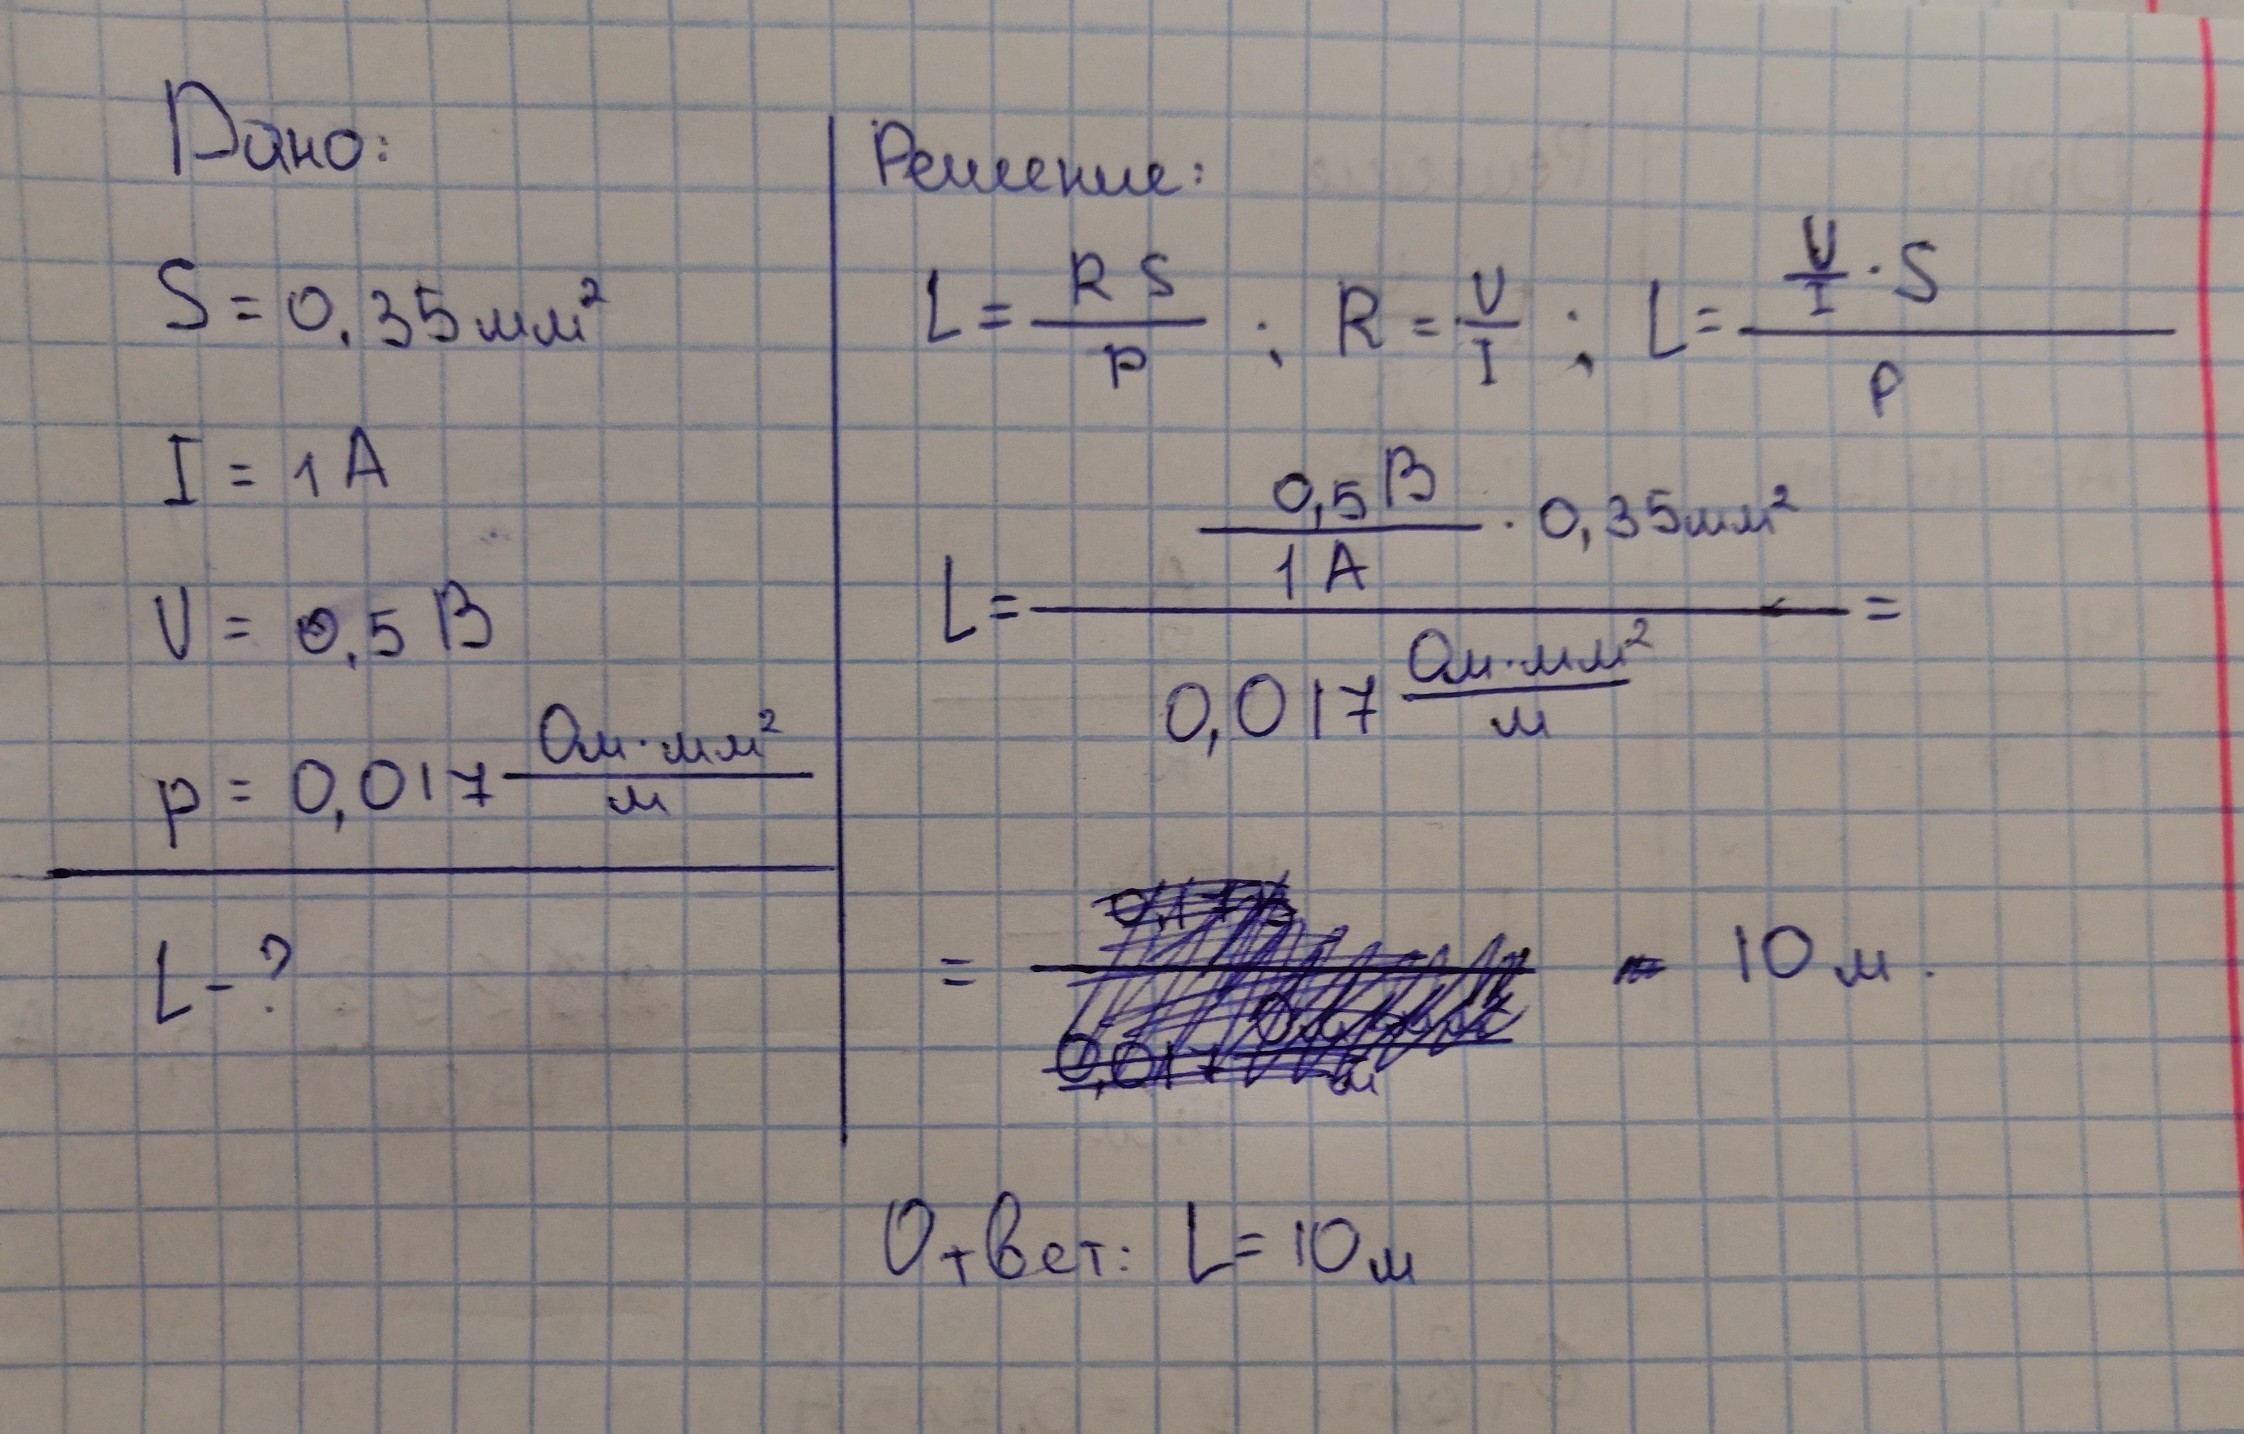 Дано:
S = 0,35 мм²
I = 1 А
U = 0,5 В
p = 0,017 Ом·мм²/м
L - ?
Решение:
L = R S / p ; R = U/I ; L = U/I · S / p
L = 0,5 В / 1 А · 0,35 мм² / 0,017 Ом·мм²/м =
= = 10 м.
Ответ: L = 10 м